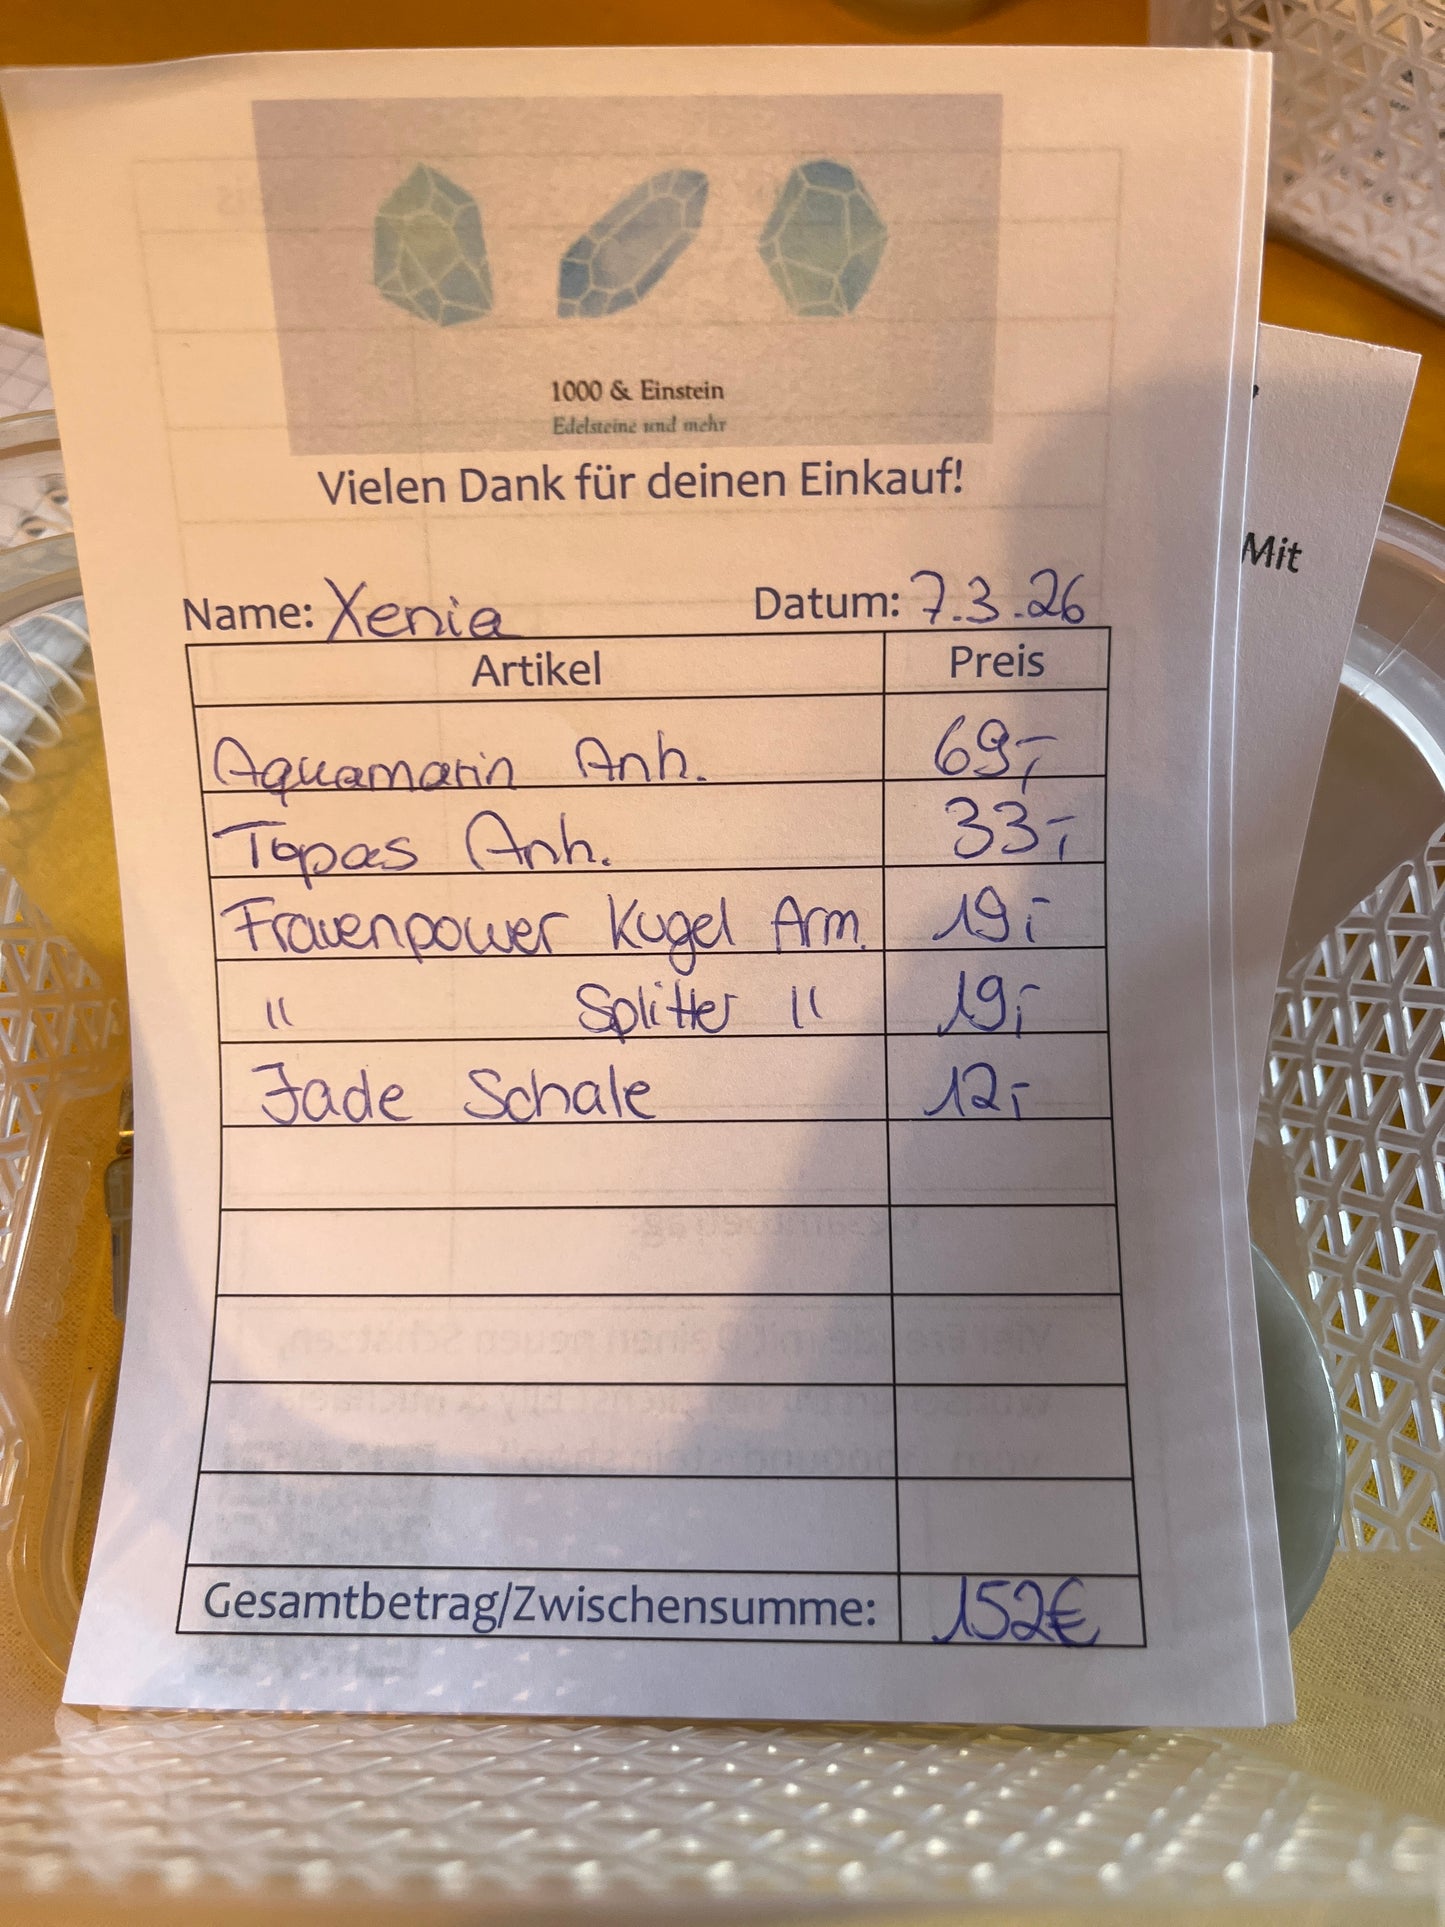 1000 & Einstein
Edelsteine und mehr
Vielen Dank für deinen Einkauf!
Name: Xenia Datum: 7.3.26
Artikel Preis
Aquamarin Anh. 69,-
Topas Anh. 33,-
Frauenpower Kugel Arm. 19,-
" Splitter " 19,-
Jade Schale 12,-
Gesamtbetrag/Zwischensumme: 152€
Mit